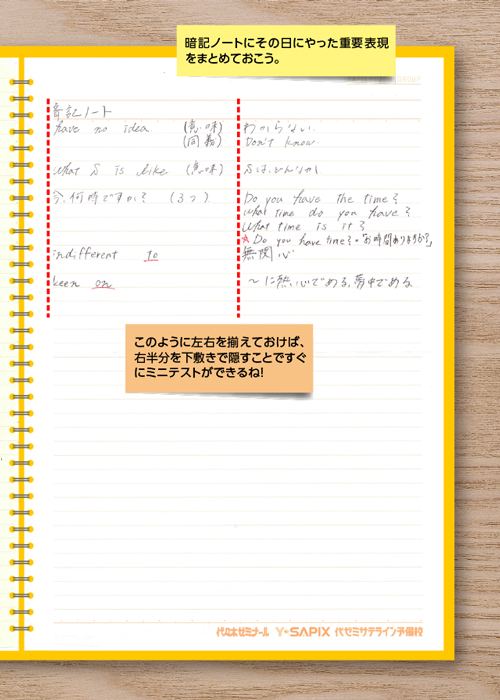 暗記ノートにその日にやった重要表現
をまとめておこう。
暗記ノート
have no idea (意味) わからない.
(同義) Don't know.
What S is like (意味) Sは、どんなか
今、何時ですか? (3つ) Do you have the time?
What time do you have?
What time is it?
☆ Do you have time?=「お時間ありますか?」
indifferent to 無関心
keen on ～に熱心である,夢中である
このように左右を揃えておけば、
右半分を下敷きで隠すことですぐ
にミニテストができるね!
代々木ゼミナール Y-SAPIX 代ゼミサテライン予備校